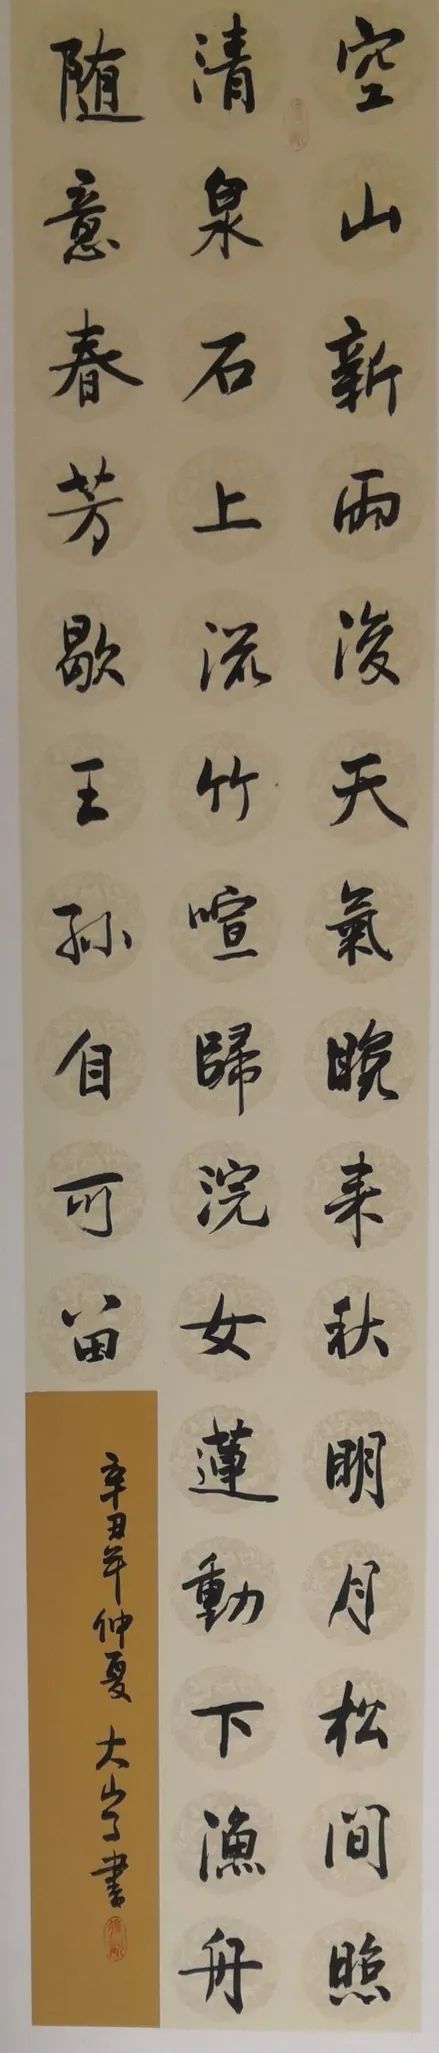 空山新雨後天氣晚来秋明月松間照
清泉石上流竹喧歸浣女蓮動下漁舟
随意春芳歇王孫自可留
辛丑年仲夏 大山书